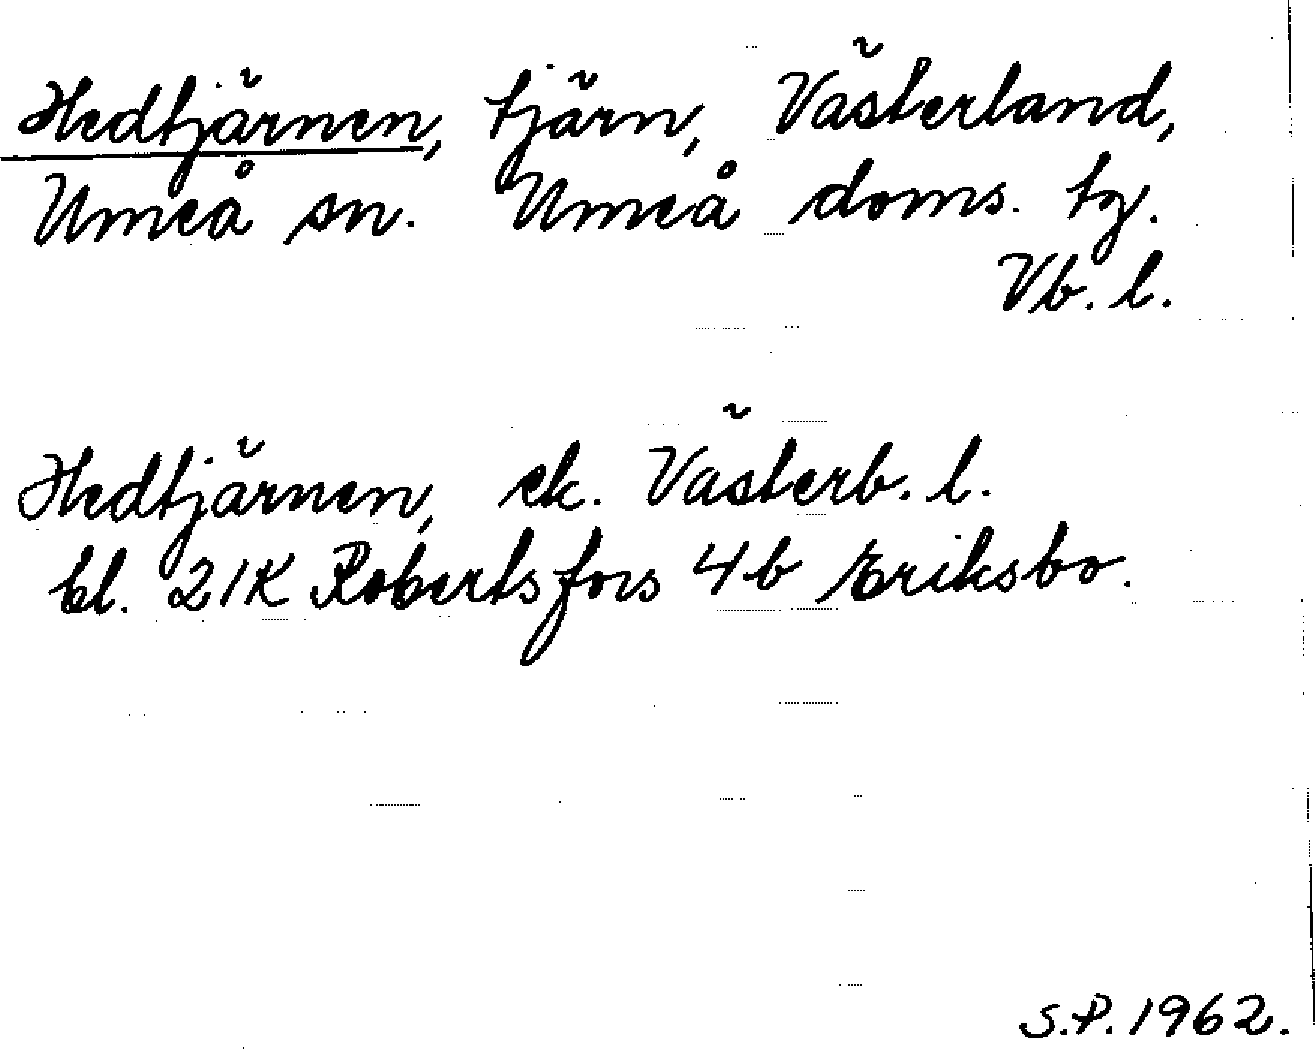 Hedtjärnen, tjärn, Västerland,
Umeå sn. Umeå doms. tg.
Vb. l.
Hedtjärnen, ek. Västerb. l.
bl. 21K Robertsfors 4b Eriksbo.
S.P. 1962.